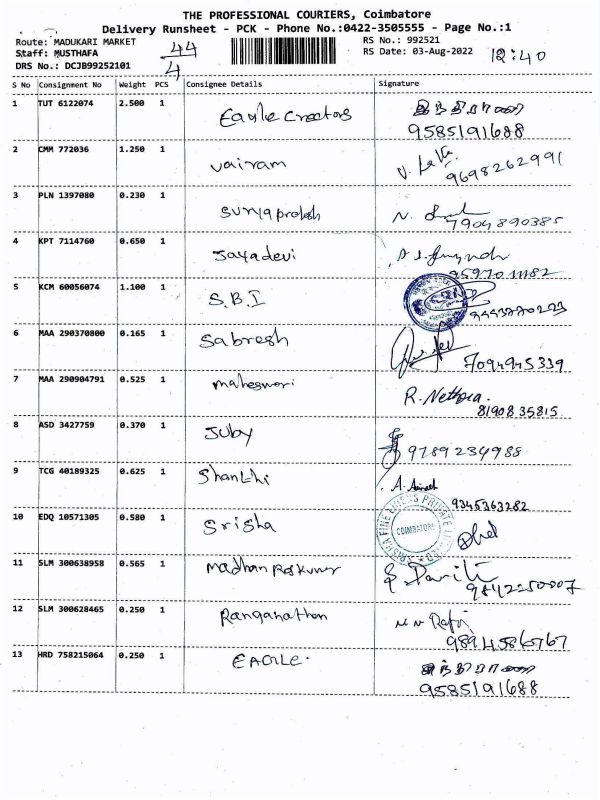 THE PROFESSIONAL COURIERS, Coimbatore
Delivery Runsheet - PCK - Phone No.:0422-3505555 - Page No.:1
Route: MADUKARI MARKET
RS No.: 992521
Staff: MUSTHAFA
RS Date: 03-Aug-2022
44/4
12:40
DRS No.: DCJB99252101
S No Consignment No Weight PCS Consignee Details Signature
1 TUT 6122074 2.500 1 Eagle Creators
இந்திராணி
9585191688
2 CMM 772036 1.250 1 vairam V.
9698262991
3 PLN 1397080 0.230 1 Suryaprakash N.
7904890385
4 KPT 7114760 0.650 1 Jayadevi
5 KCM 60056074 1.100 1 S.B.I
6 MAA 290370800 0.165 1 Sabresh
7094945339
7 MAA 290904791 0.525 1 maheswari R. Nethra.
8190835815
8 ASD 3427759 0.370 1 Juby
9789234988
9 TCG 40189325 0.625 1 Shanthi A.
9345363282
10 EDQ 10571305 0.580 1 Srisha
COIMBATORE
11 SLM 300638958 0.565 1 Madhan Rajkumar
12 SLM 300628465 0.250 1 Ranganathan
9894586767
13 HRD 758215064 0.250 1 EAGLE.
இந்திராணி
9585191688